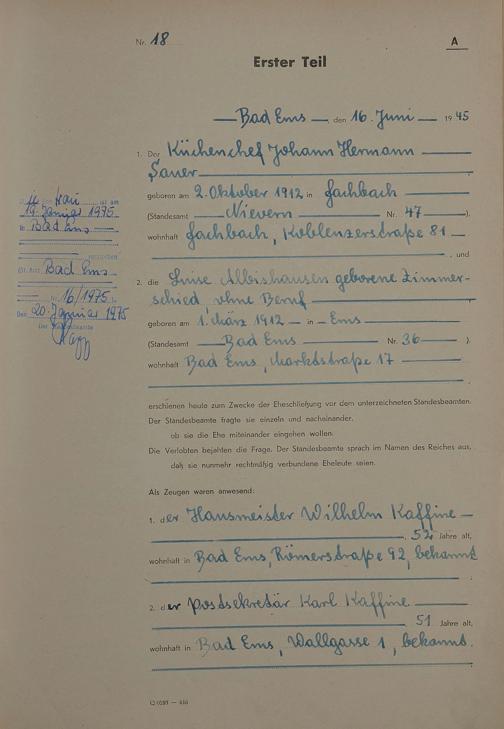 Nr. 18
A
Erster Teil
Bad Ems, den 16. Juni 1945
1. Der Küchenchef Johann Hermann
Sauer
geboren am 2. Oktober 1912 in Fachbach
(Standesamt Nievern Nr. 47).
wohnhaft Fachbach, Koblenzerstraße 81
, und
2. die Luise Albishausen geborene Zimmer-
schied, ohne Beruf
geboren am 1. März 1912 in Ems
(Standesamt Bad Ems Nr. 36).
wohnhaft Bad Ems, Marktstraße 17
erschienen heute zum Zwecke der Eheschließung vor dem unterzeichneten Standesbeamten.
Der Standesbeamte fragte sie einzeln und nacheinander,
ob sie die Ehe miteinander eingehen wollen.
Die Verlobten bejahten die Frage. Der Standesbeamte sprach im Namen des Reiches aus,
daß sie nunmehr rechtmäßig verbundene Eheleute seien.
Als Zeugen waren anwesend:
1. der Hausmeister Wilhelm Kaffine
, 52 Jahre alt,
wohnhaft in Bad Ems, Römerstraße 92, bekannt
2. der Postsekretär Karl Kaffine
51 Jahre alt,
wohnhaft in Bad Ems, Wallgasse 1, bekannt.
Frau ist am
19. Januar 1975
in Bad Ems
verstorben
Bad Ems
Nr. 16/1975).
Den 20. Januar 1975
Der Standesbeamte